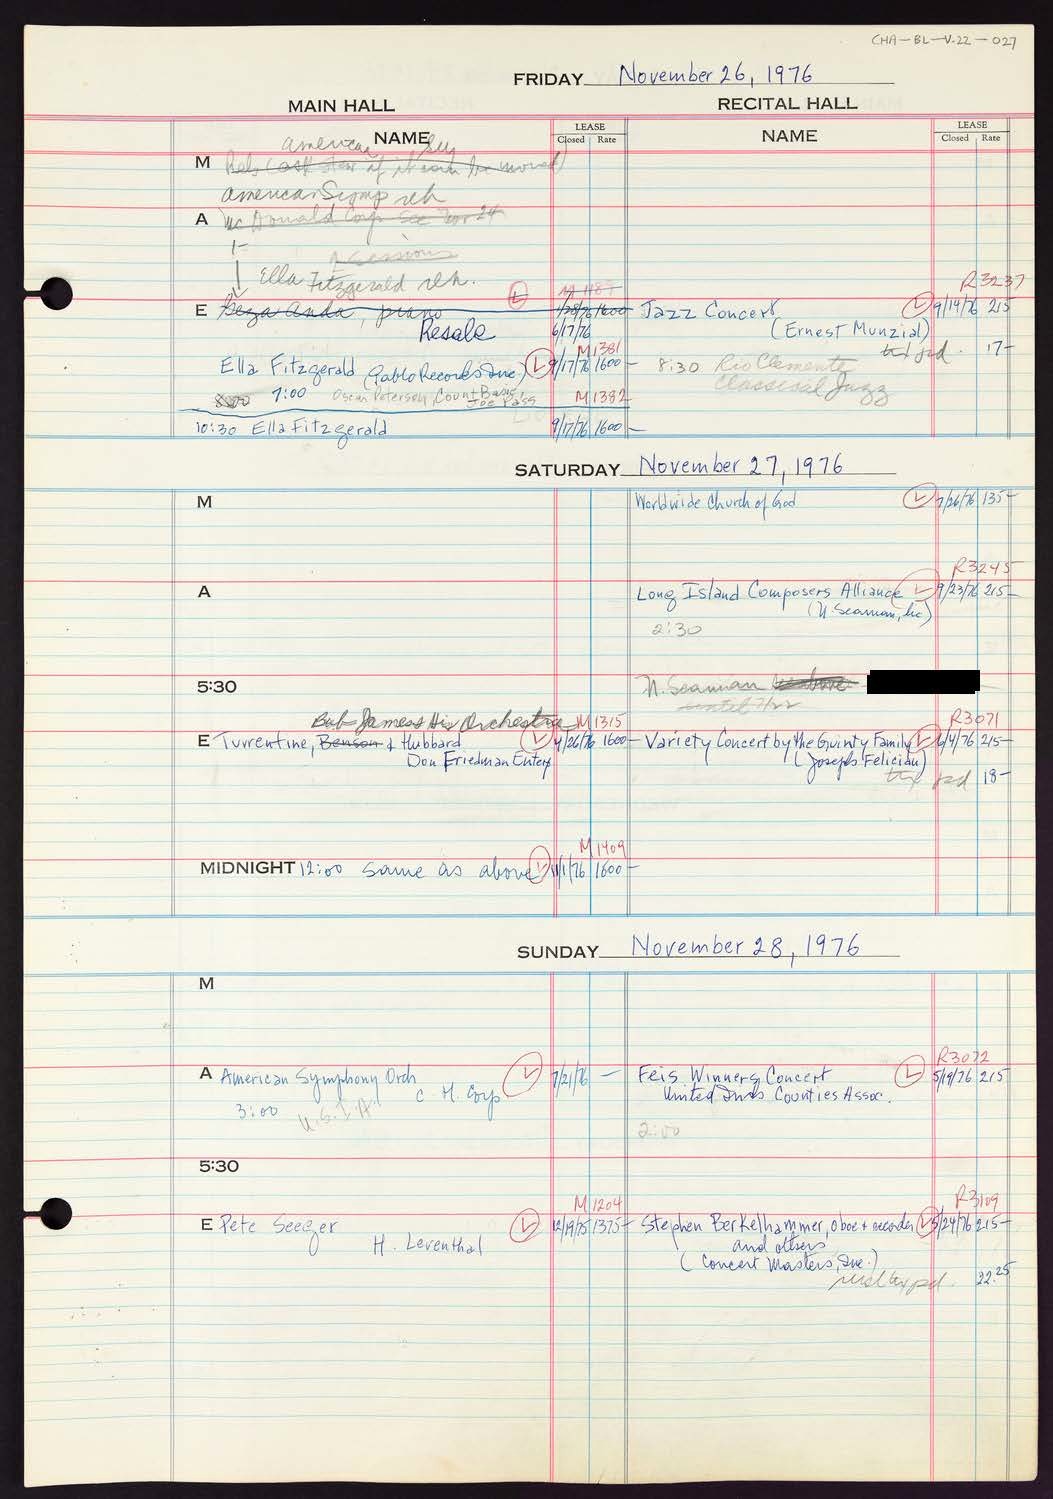 CHA-BL-V.22-027
FRIDAY November 26, 1976
MAIN HALL
RECITAL HALL
NAME
LEASE
Closed Rate
NAME
LEASE
Closed Rate
American
M
American Symp reh
A McDonald Corp. See Nov 24
1-
2 sessions
Ella Fitzgerald reh.
E Geza Anda, piano
M 1187
1/28/76 1600-
Resale
6/17/76
Ella Fitzgerald (Pablo Records Inc.)
M1381
9/17/76 1600-
8:00 7:00 Oscar Peterson, Count Basie,
Joe Pass
M1382
10:30 Ella Fitzgerald
9/17/76 1600-
R3237
Jazz Concert
9/14/76 215
(Ernest Munzial)
tax pd. 17-
8:30 Rio Clemente
Classical Jazz
SATURDAY November 27, 1976
M
Worldwide Church of God
7/26/76 135-
A
R3245
Long Island Composers Alliance
9/23/76 215-
(N. Seaman, Inc)
2:30
5:30
N. Seaman see above
until 7/22
Bob James & His Orchestra
M1315
E Turrentine, Benson & Hubbard
4/26/76 1600-
Don Friedman Enterp
R3071
Variety Concert by the Guinty Family
6/4/76 215-
(Joseph Felician)
tax pd 18-
M1409
MIDNIGHT 12:00 same as above
11/1/76 1600-
SUNDAY November 28, 1976
M
A American Symphony Orch
C. H. Corp
7/21/76 -
3:00 U.S.I.A.
R3072
Feis Winners Concert
5/19/76 215
United Irish Counties Assoc.
2:00
5:30
M1204
E Pete Seeger
12/19/75 1375-
H. Leventhal
R3109
Stephen Berkelhammer, oboe & recorder
5/24/76 215-
and others
(Concert Masters, Inc.)
pd. 22.25